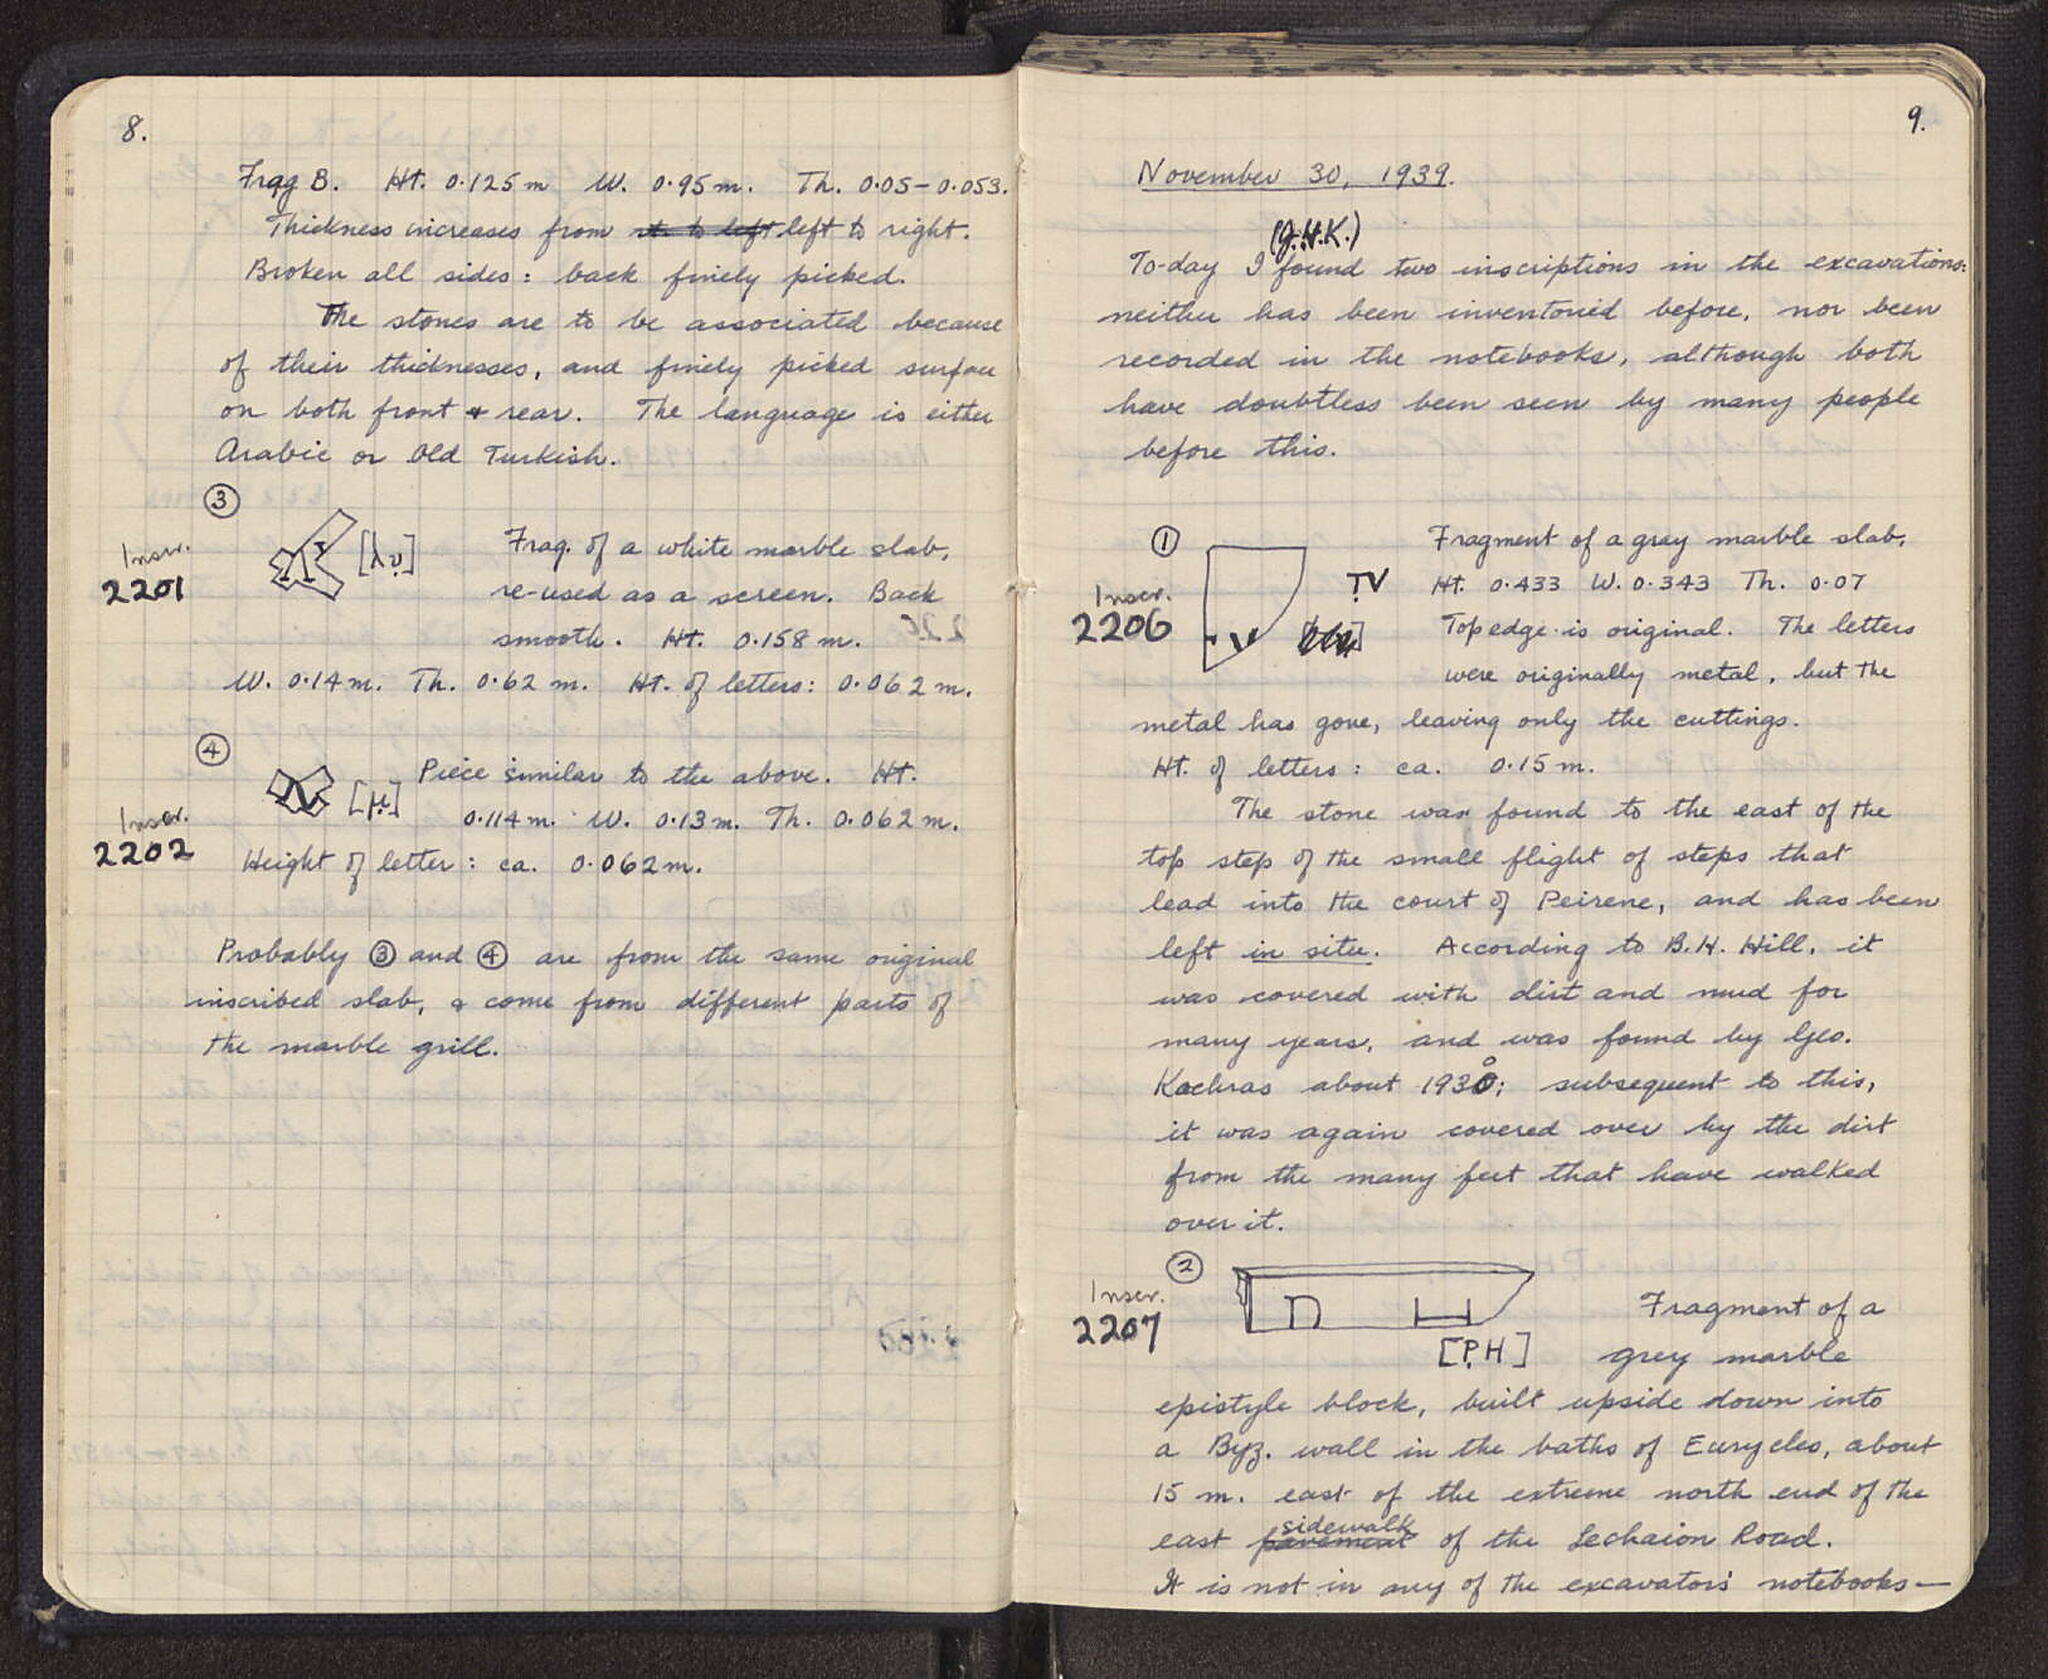 8.
Frag B. Ht. 0.125 m W. 0.95 m. Th. 0.05 - 0.053.
Thickness increases from rt. to left left to right.
Broken all sides: back finely picked.
The stones are to be associated because
of their thicknesses, and finely picked surface
on both front & rear. The language is either
Arabic or Old Turkish.
③
Inscr.
2201
[λυ]
Frag. of a white marble slab,
re-used as a screen. Back
smooth. Ht. 0.158 m.
W. 0.14 m. Th. 0.62 m. Ht. of letters: 0.062 m.
④
Inscr.
2202
[μ]
Piece similar to the above. Ht.
0.114 m. W. 0.13 m. Th. 0.062 m.
Height of letter: ca. 0.062 m.
Probably ③ and ④ are from the same original
inscribed slab, & come from different parts of
the marble grill.
9.
November 30, 1939.
(J.H.K.)
To-day I found two inscriptions in the excavations:
neither has been inventoried before, nor been
recorded in the notebooks, although both
have doubtless been seen by many people
before this.
①
Inscr.
2206
TV
Fragment of a gray marble slab,
Ht. 0.433 W. 0.343 Th. 0.07
Top edge is original. The letters
were originally metal, but the
metal has gone, leaving only the cuttings.
Ht. of letters: ca. 0.15 m.
The stone was found to the east of the
top step of the small flight of steps that
lead into the court of Peirene, and has been
left in situ. According to B.H. Hill, it
was covered with dirt and mud for
many years, and was found by Geo.
Kachras about 1930; subsequent to this,
it was again covered over by the dirt
from the many feet that have walked
over it.
②
Inscr.
2207
[PH]
Fragment of a
grey marble
epistyle block, built upside down into
a Byz. wall in the baths of Eurycles, about
15 m. east of the extreme north end of the
east pavement sidewalk of the Lechaion Road.
It is not in any of the excavators' notebooks—